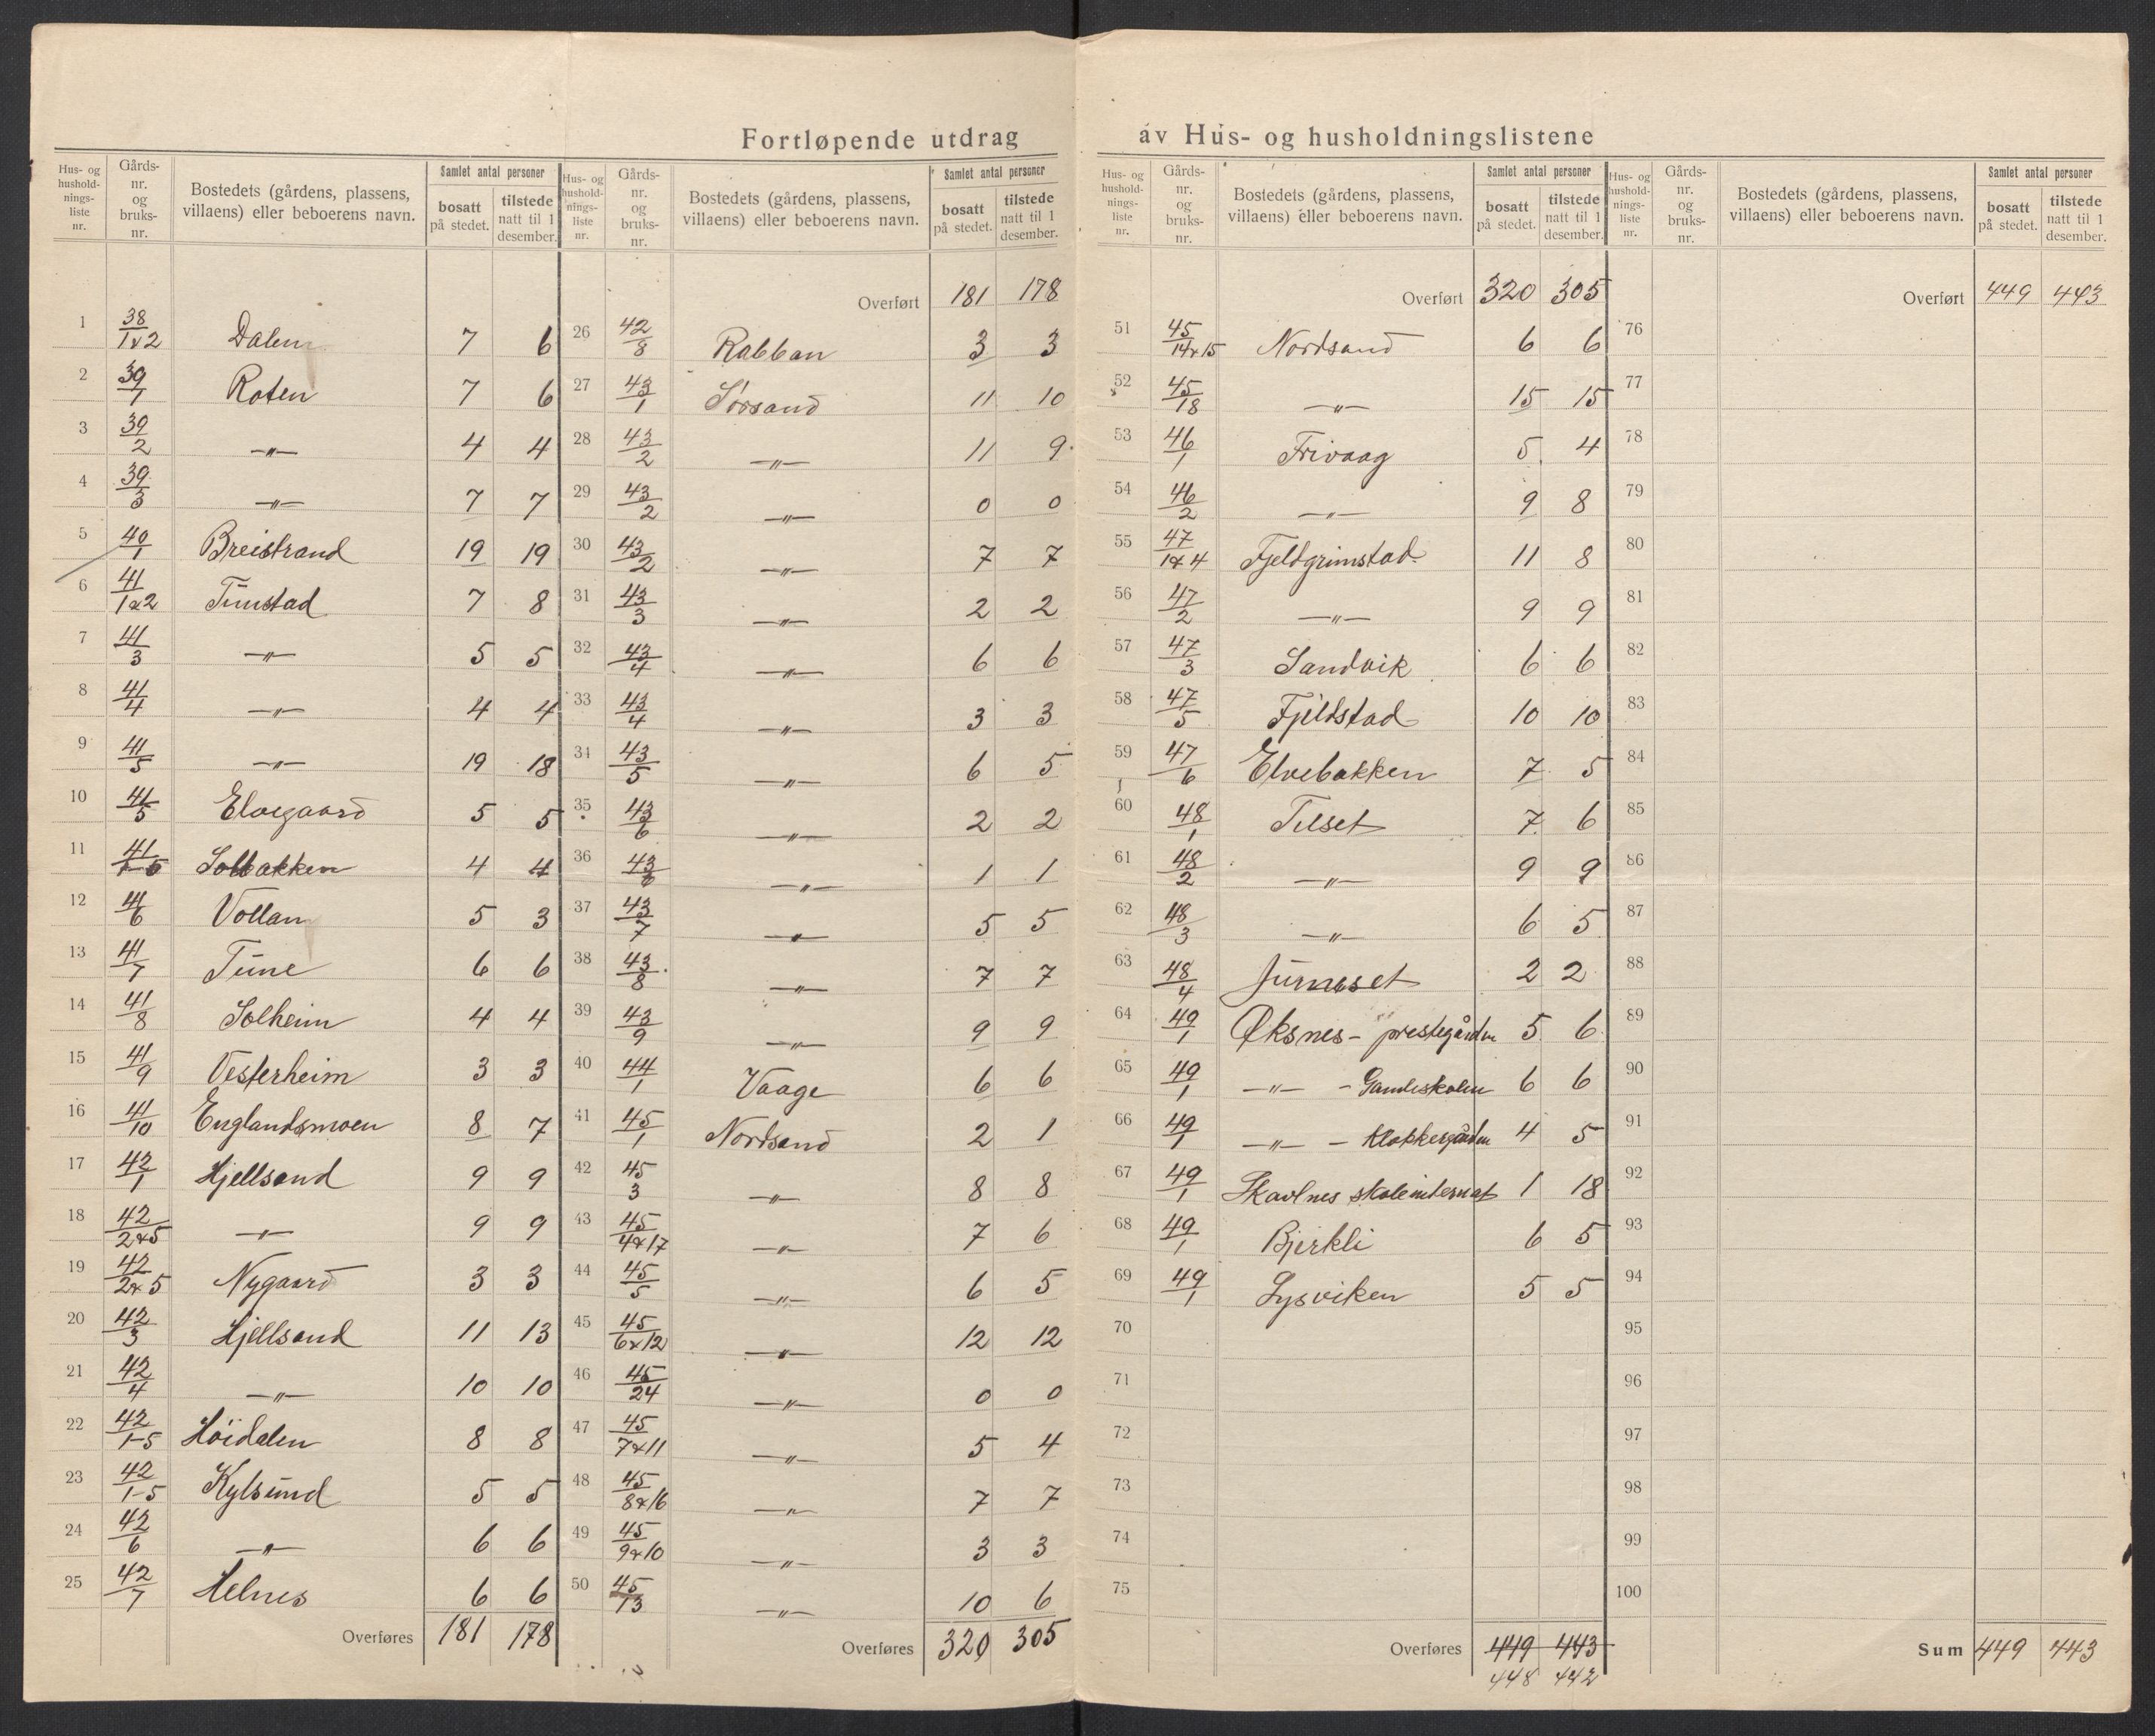 Fortløpende utdrag av Hus- og husholdningslistene
Hus- og hushold-nings-liste nr. | Gårds-nr. og bruks-nr. | Bostedets (gårdens, plassens, villaens) eller beboerens navn. | Samlet antal personer | bosatt på stedet. | tilstede natt til 1 desember.
1 38/1&2 Dalen 7 6
2 39/1 Roten 7 6
3 39/2 —"— 4 4
4 39/3 —"— 7 7
5 40/1 Breistrand 19 19
6 41/1&2 Tunstad 7 8
7 41/3 —"— 5 5
8 41/4 —"— 4 4
9 41/5 —"— 19 18
10 41/5 Elvegaard 5 5
11 41/1-5 Solbakken 4 4
12 41/6 Vollan 5 3
13 41/7 Tune 6 6
14 41/8 Solheim 4 4
15 41/9 Vesterheim 3 3
16 41/10 Englandsmoen 8 7
17 42/1 Hjellsand 9 9
18 42/2&5 —"— 9 9
19 42/2&5 Nygaard 3 3
20 42/3 Hjellsand 11 13
21 42/4 —"— 10 10
22 42/1-5 Høidalen 8 8
23 42/1-5 Kylsund 5 5
24 42/6 —"— 6 6
25 42/7 Helnes 6 6
Overføres 181 178
Hus- og hushold-nings-liste nr. | Gårds-nr. og bruks-nr. | Bostedets (gårdens, plassens, villaens) eller beboerens navn. | Samlet antal personer | bosatt på stedet. | tilstede natt til 1 desember.
Overført 181 178
26 42/8 Rabban 3 3
27 43/1 Sørsand 11 10
28 43/2 —"— 11 9
29 43/2 —"— 0 0
30 43/2 —"— 7 7
31 43/3 —"— 2 2
32 43/4 —"— 6 6
33 43/4 —"— 3 3
34 43/5 —"— 6 5
35 43/6 —"— 2 2
36 43/6 —"— 1 1
37 43/7 —"— 5 5
38 43/8 —"— 7 7
39 43/9 —"— 9 9
40 44/1 Vaage 6 6
41 45/1 Nordsand 2 1
42 45/3 —"— 8 8
43 45/4&17 —"— 7 6
44 45/5 —"— 6 5
45 45/6&12 —"— 12 12
46 45/24 —"— 0 0
47 45/7&11 —"— 5 4
48 45/8&16 —"— 7 7
49 45/9&10 —"— 3 3
50 45/13 —"— 10 6
Overføres 320 305
Hus- og hushold-nings-liste nr. | Gårds-nr. og bruks-nr. | Bostedets (gårdens, plassens, villaens) eller beboerens navn. | Samlet antal personer | bosatt på stedet. | tilstede natt til 1 desember.
Overført 320 305
51 45/14&15 Nordsand 6 6
52 45/18 —"— 15 15
53 46/1 Frivaag 5 4
54 46/2 —"— 9 8
55 47/1&4 Fjeldgrimstad 11 8
56 47/2 —"— 9 9
57 47/3 Sandvik 6 6
58 47/5 Fjeldstad 10 10
59 47/6 Elvebakken 7 5
60 48/1 Tilset 7 6
61 48/2 —"— 9 9
62 48/3 —"— 6 5
63 48/4 2 2
64 49/1 Øksnes - prestegården 5 6
65 49/1 —"— - Gamleskolen 6 6
66 49/1 —"— - Klokkergården 4 5
67 49/1 Skavlnes skoleinternat 1 18
68 49/1 Bjerkli 6 5
69 49/1 Lysviken 5 5
70
71
72
73
74
75
Overføres 449 443
448 442
Hus- og hushold-nings-liste nr. | Gårds-nr. og bruks-nr. | Bostedets (gårdens, plassens, villaens) eller beboerens navn. | Samlet antal personer | bosatt på stedet. | tilstede natt til 1 desember.
Overført 449 443
76
77
78
79
80
81
82
83
84
85
86
87
88
89
90
91
92
93
94
95
96
97
98
99
100
Sum 449 443